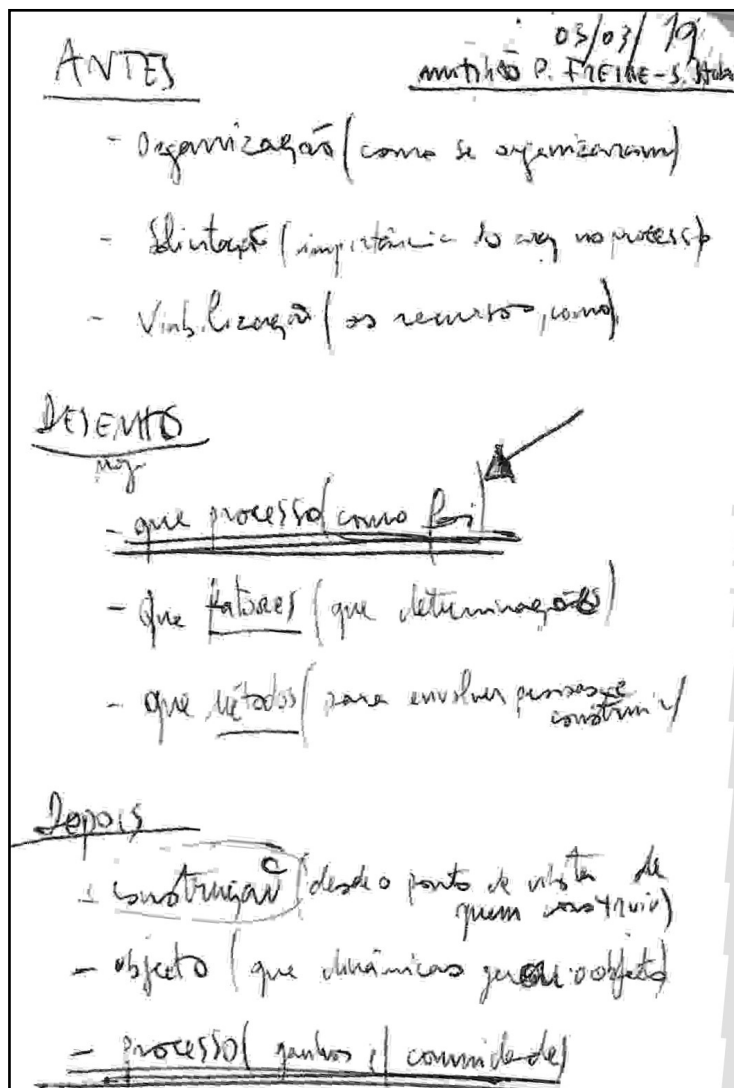 03/03/19
ANTES
mutirão P. FREIRE - S.
- Organização (como se organizaram)
- Solicitação (importância do arq no processo
- Viabilização (os recursos, como)
DESENHO
- que processo (como foi)
- Que fatores (que determinações)
- que métodos (para envolver pessoas e
construir)
Depois
- construção (desde o ponto de vista de
quem construiu)
- objecto (que dinâmicas gerou o objecto)
- processo (ganhos comunidade)